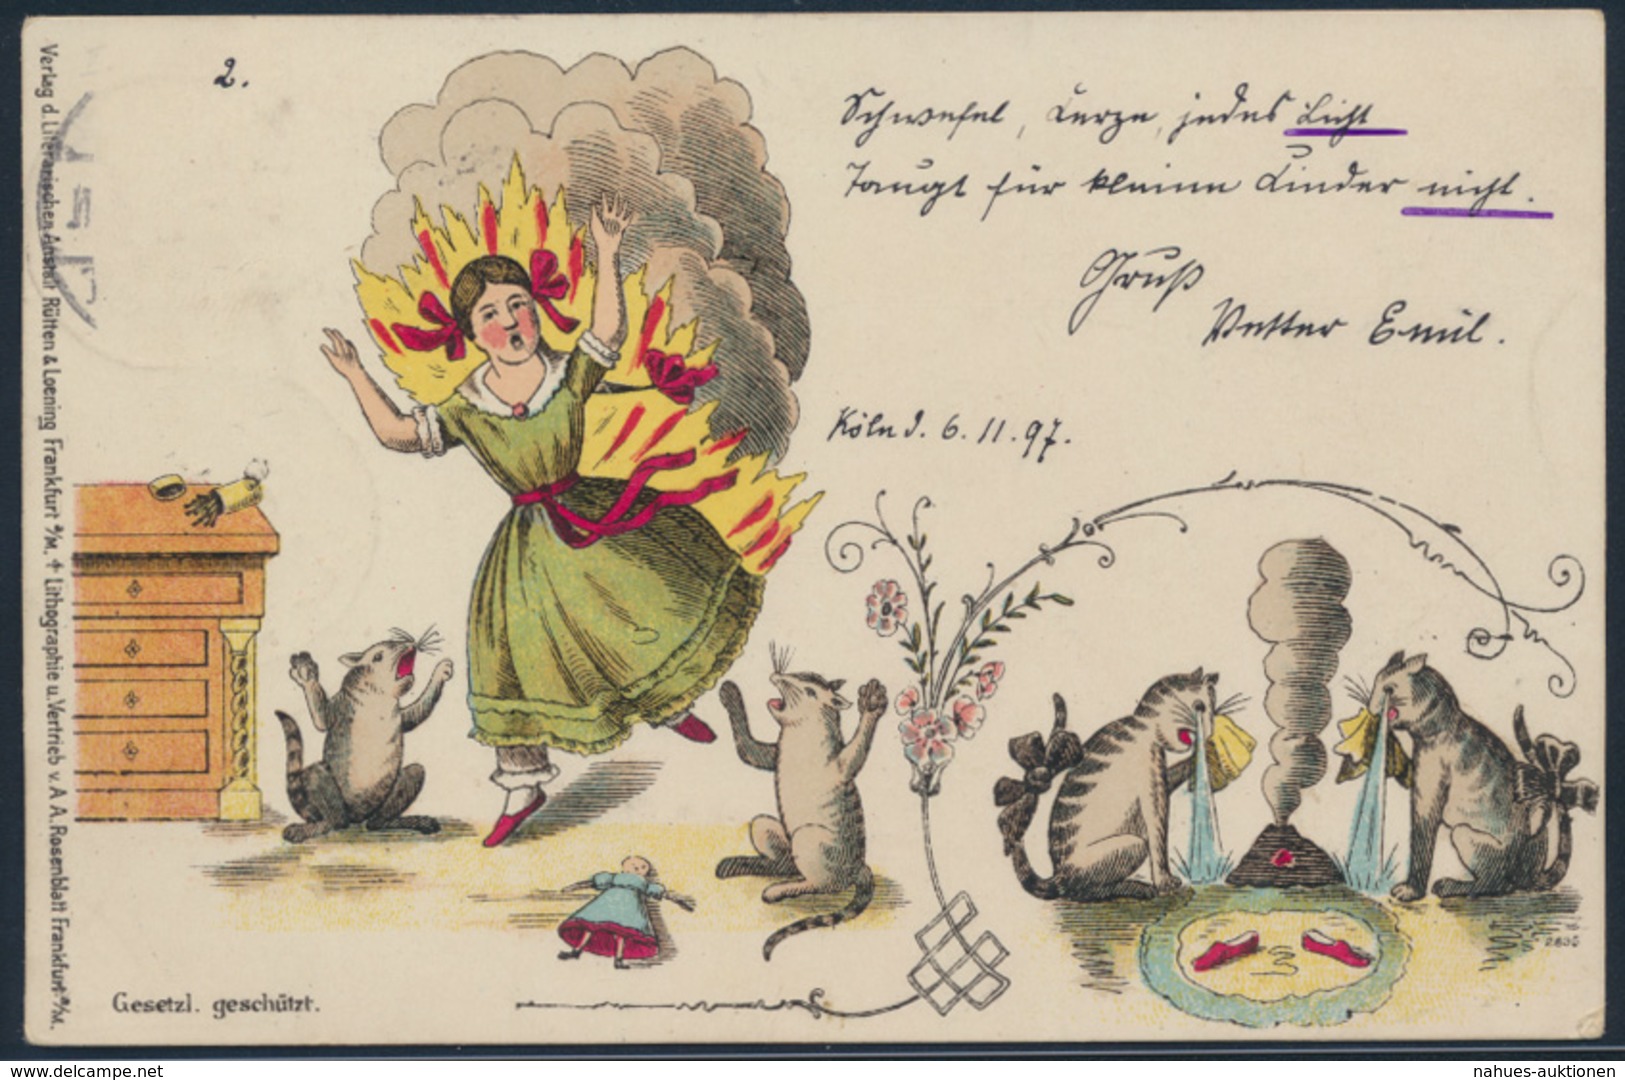 2.
Schwefel, Kerze, jedes Licht
Taugt für kleine Kinder nicht.
Gruß
Vetter Emil.
Köln d. 6.11.97.
Verlag d. Literarischen Anstalt Rütten & Loening Frankfurt a/M. + Lithographie u. Vertrieb v. A. A. Rosenblatt Frankfurt a/M.
Gesetzl. geschützt.
www.delcampe.net
nahues-auktionen